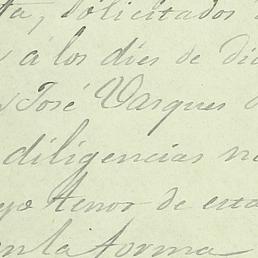 ta, solicitados
á los dies de di
José Vasques
diligencias n
yo tenor de esta
en la forma